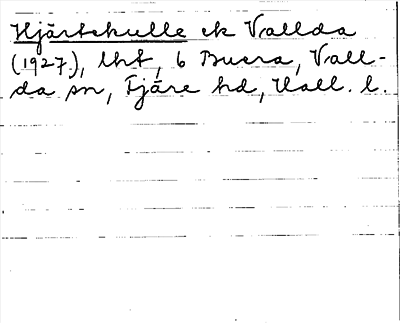 Hjärtekulle ek Vallda
(1927), lht, 6 Buera, Vall-
da sn, Fjäre hd, Hall. l.